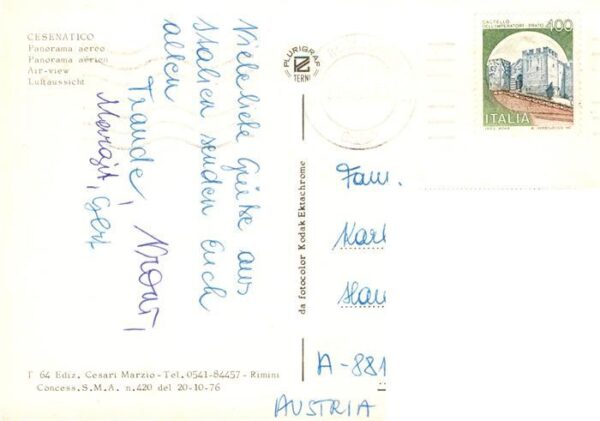 CESENATICO
Panorama aereo
Panorama aérien
Air-view
Luftaussicht
Viele liebe Grüße aus
Italien senden Euch
allen
Traude,
Margit, Gert
PLURIGRAF
TERNI
da fotocolor Kodak Ektachrome
CASTELLO
DELL'IMPERATORE · PRATO
100
ITALIA
Fam.
Karl
Hau
A-881
AUSTRIA
T 64 Ediz. Cesari Marzio - Tel. 0541-84457 - Rimini
Concess. S.M.A. n.420 del 20-10-76